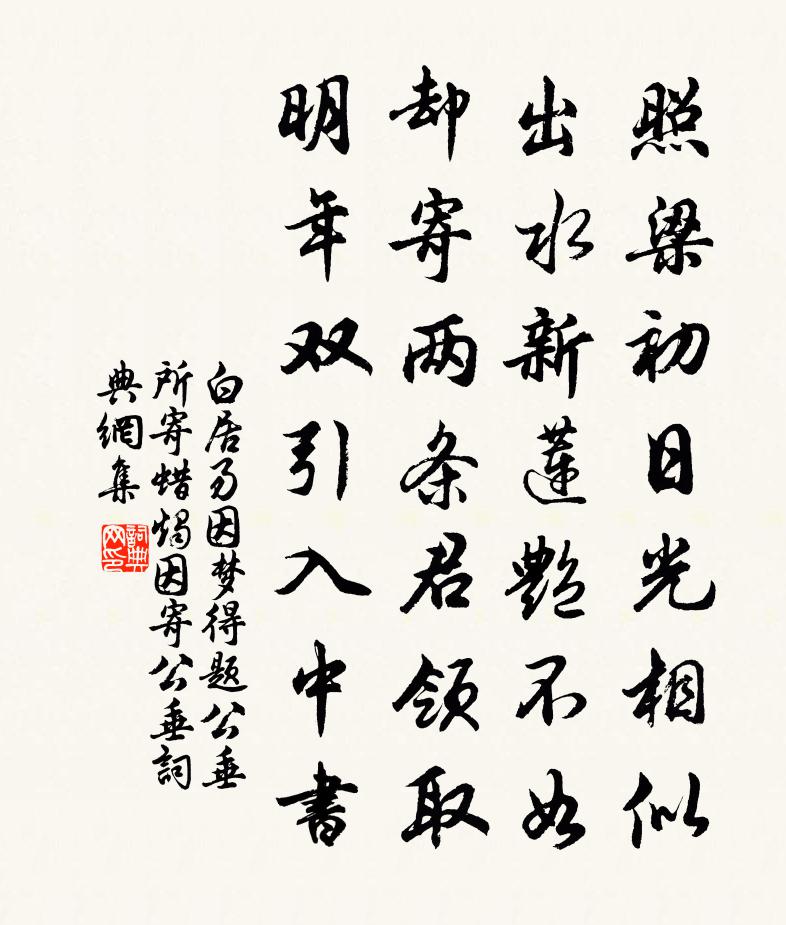 照梁初日光相似
出水新莲艷不如
却寄两条君领取
明年双引入中書
白居易因梦得题公垂
所寄蜡燭因寄公垂詞
典網集
詞典
网印